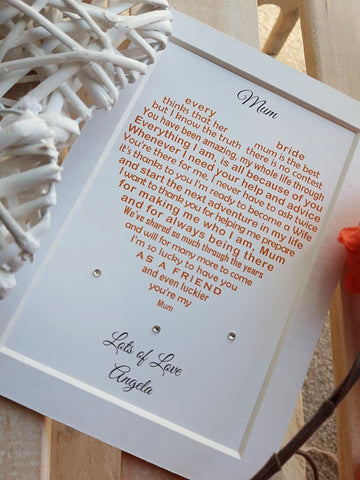 Mum
every bride
thinks that her mum is the best
but I know the truth there is no contest
You have been amazing, my whole life through
Everything I am, is all because of you
Whenever I need your help and advice
You're there for me, I never have to ask twice
it's thanks to you I'm ready to become a wife
and start the next adventure in my life
I want to thank you for helping me prepare
for making me who I am, Mum
and for always being there
We've shared so much through the years
and will for many more to come
I'm so lucky to have you
AS A FRIEND
and even luckier
you're my
Mum
Lots of Love
Angela